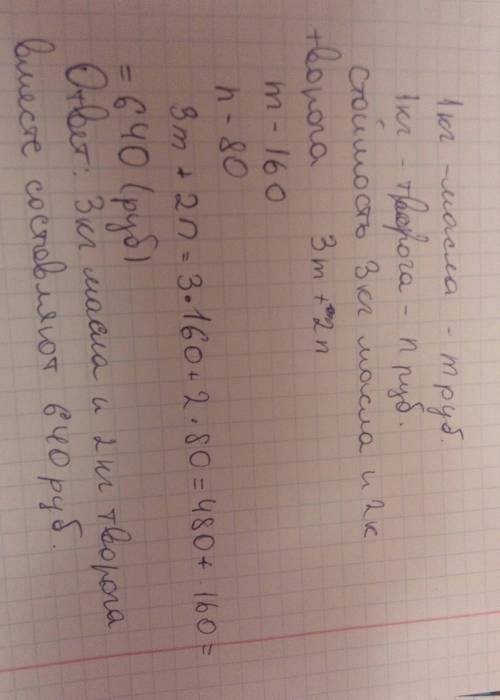 1кг - масла - m руб.
1кг - творога - n руб.
стоймость 3кг масла и 2к
творога 3m + 2n
m - 160
n - 80
3m + 2n = 3·160 + 2·80 = 480 + 160 =
= 640 (руб)
Ответ: 3кг масла и 2кг творога
вместе состовляют 640 руб.